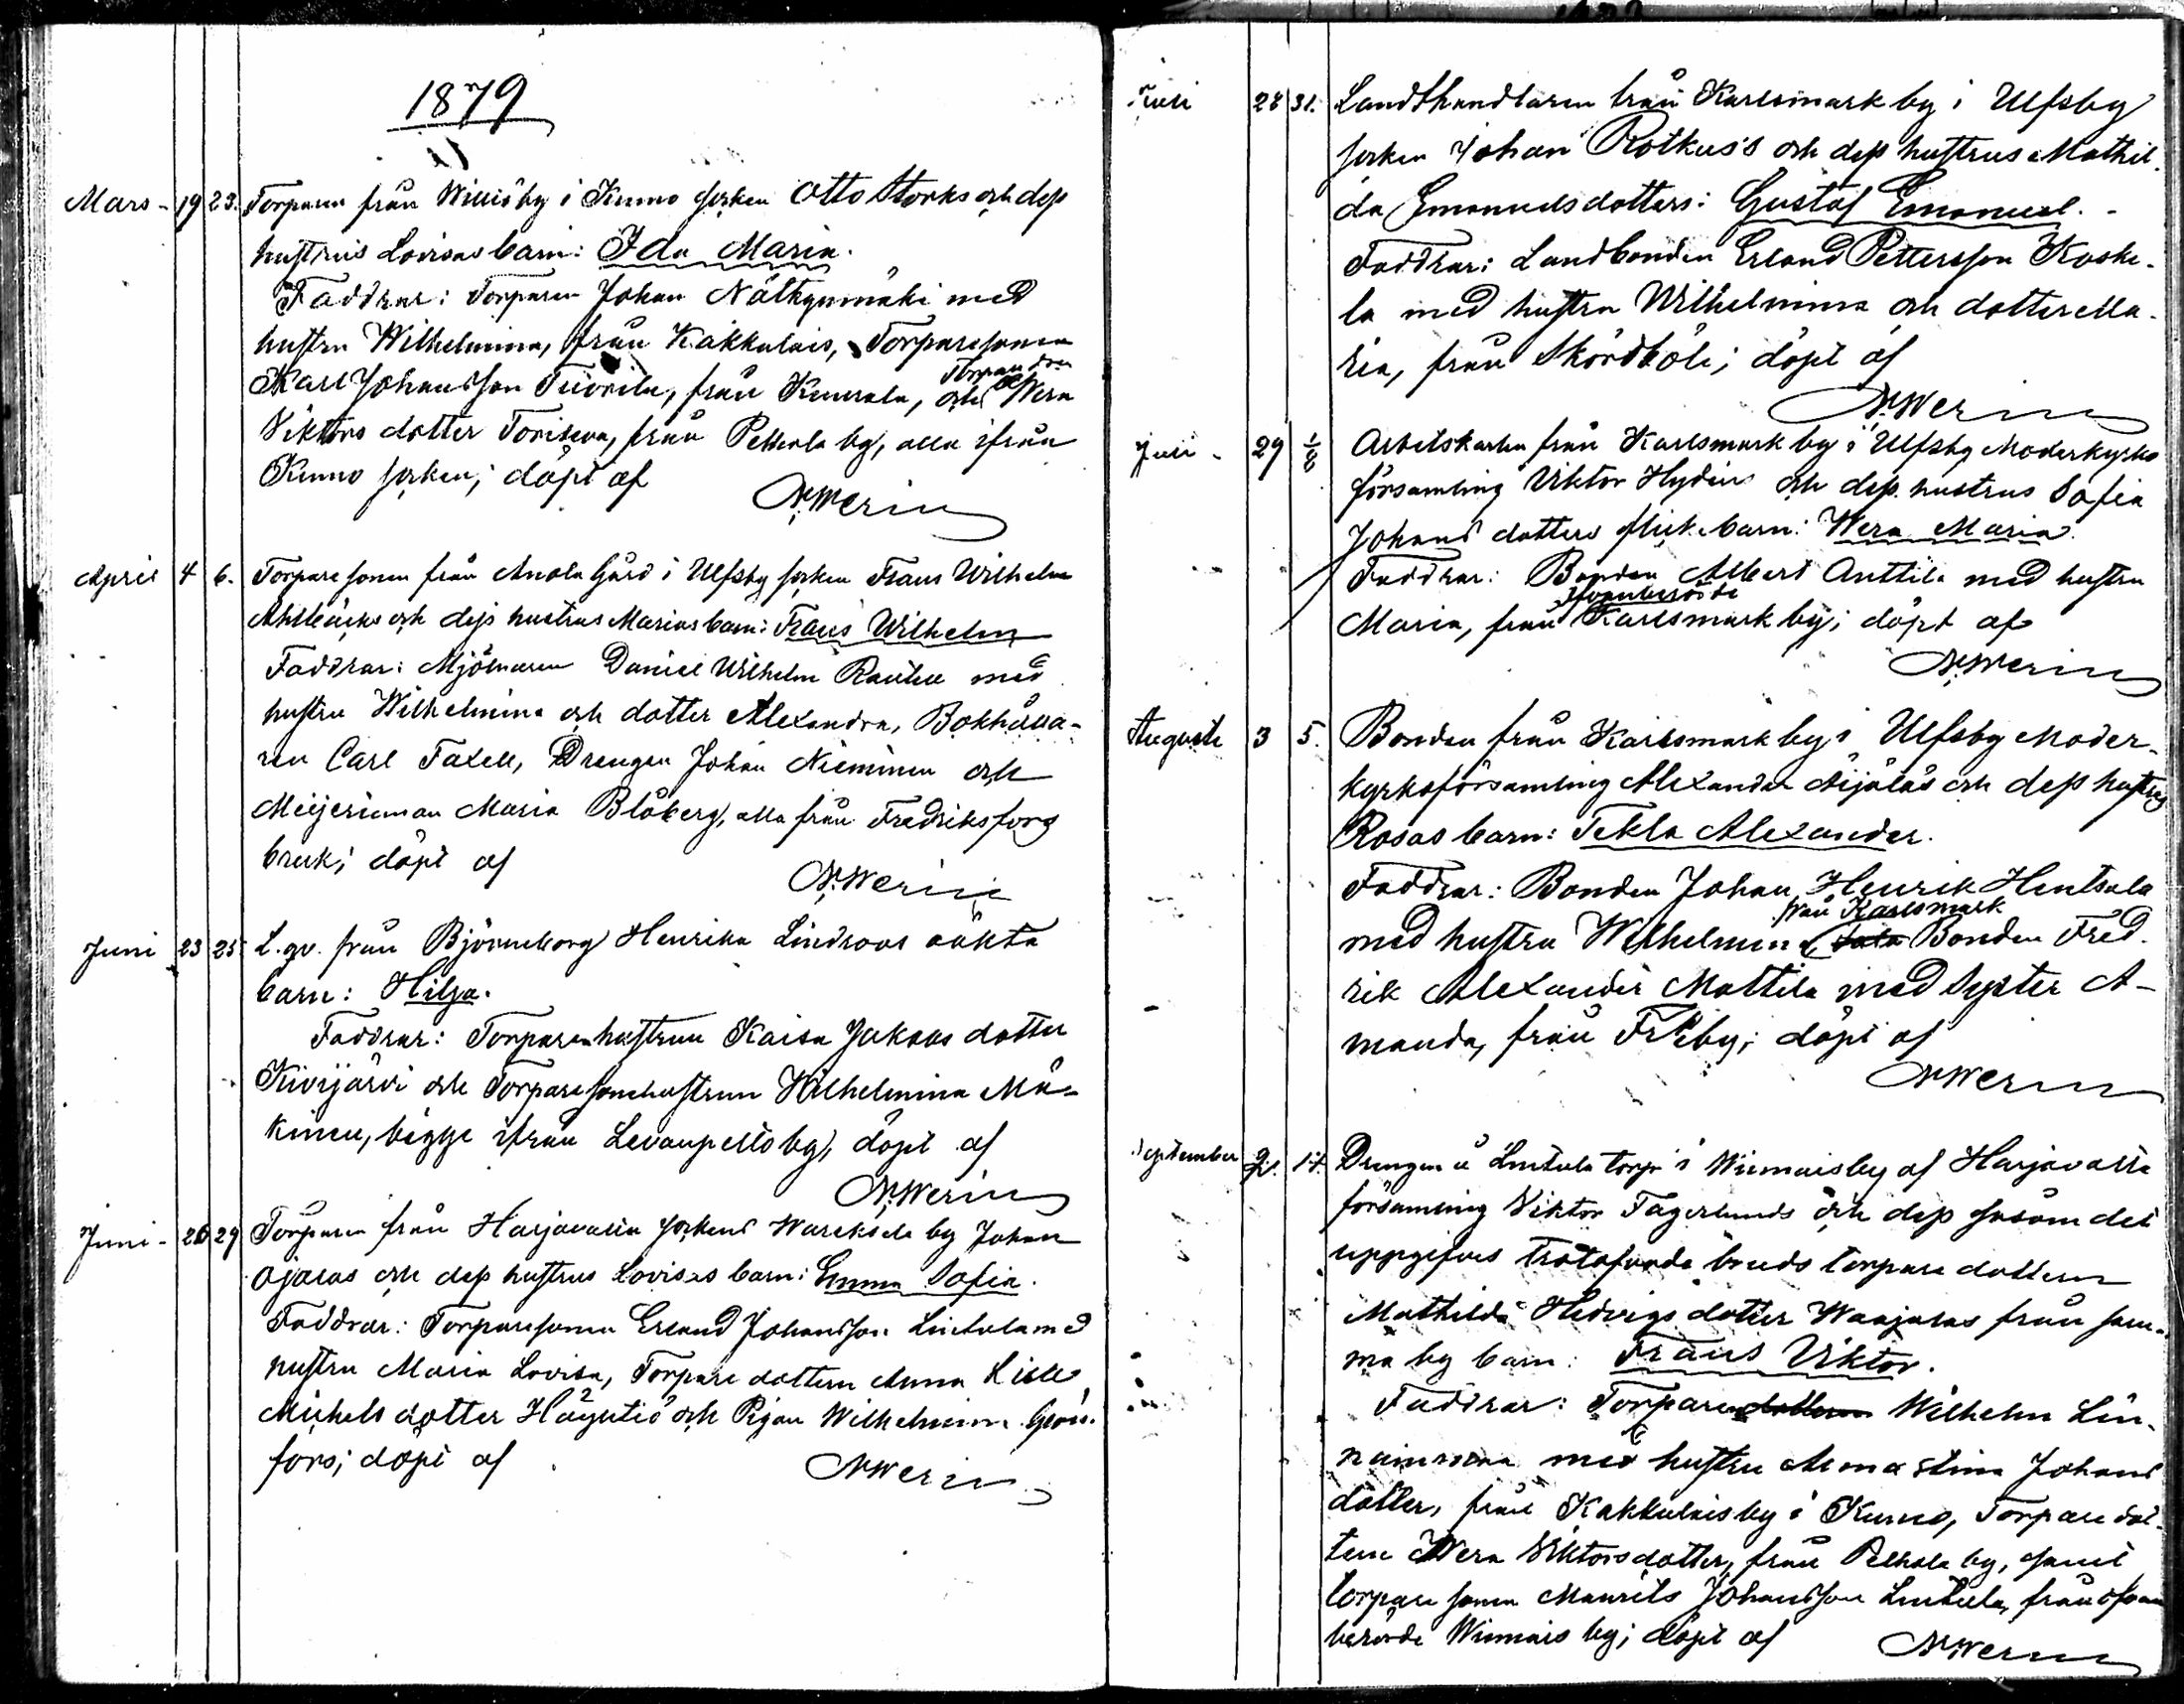 1879
Mars - 19 23. Torparen från Williöby i Kumo socken Otto Storks och dess
hustrus Lovisas barn: Ida Maria.
Faddrar: Torparen Johan Nälkynmäki med
hustru Wilhelmina, från Kakkulais, Torparesonen
Karl Johansson Tuorila, från Kukola, och Torparedren Wera
Viktors dotter Toriseva, från Pelhola by, alla ifrån
Kumo socken; döpt af
N. Werin
April 4 6. Torparesonen från Anola Gård i Ulfsby socken Frans Wilhelm
Ahlbäcks och dess hustrus Marias barn: Frans Wilhelm
Faddrar: Mjölnaren Daniel Wilhelm Rautell med
hustru Wilhelmina och dotter Alexandra, Bokhålla-
ren Carl Faxell, Drengen Johan Nieminen och
Meijerinnan Maria Blåberg, alla från Fredriksfors
bruk; döpt af
N. Werin
Juni 23 25 L. qv. från Björneborg Henrika Lindroos oäkta
barn: Hilja.
Faddrar: Torparehustrun Kaisa Jakobs dotter
Kivijärvi och Torparesonehustrun Wilhelmina Mä-
kinen, bägge ifrån Levanpelto by, döpt af
N. Werin
Juni - 26 29 Torparen från Harjavalta sockens Wareksela by Johan
Ojalas och dess hustrus Lovisas barn: Emma Sofia.
Faddrar: Torparesonen Erland Johansson Lintula med
hustru Maria Lovisa, Torpare dottern Anna Lisa
Mickels dotter Häyhtiö och Pigan Wilhelmina Grön-
fors; döpt af
N. Werin
Juli 28 31. Landthandlaren från Karlsmark by i Ulfsby
socken Johan Rotkus's och dess hustrus Mathil-
da Emanuelsdotters: Gustaf Emanuel. -
Faddrar: Landbonden Erland Pettersson Koske-
la med hustru Wilhelmina och dotter Ma-
ria, från Skördböle; döpt af
N. Werin
Juli - 29 1/8 Arbetskarlen från Karlsmark by i Ulfsby Moderkyrko
församling Viktor Hydéns och dess hustrus Sofia
Johans dotters flickebarn: Wera Maria.
Faddrar: Bonden Albert Anttila med hustru
Maria, från ofvanberörde Karlsmark by; döpt af
N. Werin
Augusti 3 5. Bonden från Karlsmark by i Ulfsby Moder-
kyrkoförsamling Alexander Äijäläs och dess hustrus
Rosas barn: Tekla Alexander.
Faddrar: Bonden Johan Henrik Hentsala
med hustru Wilhelmina från Karlsmark Bonden Fred-
rik Alexander Mattila med Syster A-
manda, från Friby; döpt af
N. Werin
September 9. 14. Drengen å Lintula torp i Winnais by af Harjavalta
församling Viktor Fagerlunds och dess såsom det
uppgifves trolofvade bruds torpare dottern
Mathilda Hedvigs dotter Waajalas från sam-
ma by barn: Frans Viktor.
Faddrar: Torparen dottern Wilhelm Lin-
nainmaa med hustru Anna Stina Johans
dotter, från Kakkulais by i Kumo, Torpare dot-
tern Wera Viktorsdotter, från Pelhola by, samt
torpare sonen Maurits Johansson Lintula, från ofvan
berörde Winnais by; döpt af
N. Werin